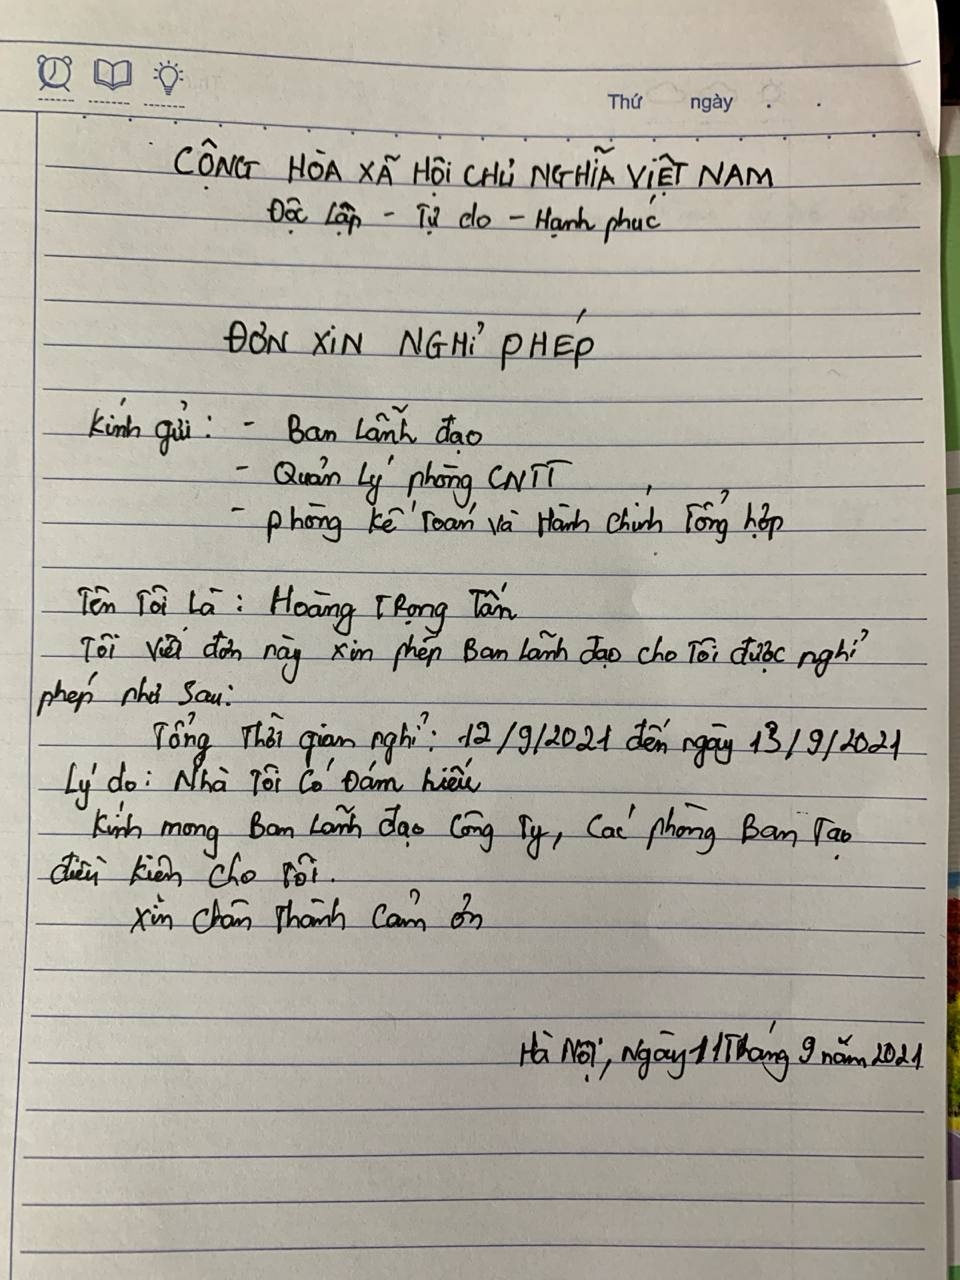 Thứ ngày . .
CỘNG HÒA XÃ HỘI CHỦ NGHĨA VIỆT NAM
Độc lập - Tự do - Hạnh phúc
ĐƠN XIN NGHỈ PHÉP
Kính gửi: - Ban Lãnh đạo
- Quản Lý phòng CNTT
- phòng kế Toán và Hành chính Tổng hợp
Tên Tôi Là : Hoàng TRọng Tấn
Tôi viết đơn này xin phép Ban Lãnh đạo cho Tôi được nghỉ
phép như sau:
Tổng Thời gian nghỉ: 12/9/2021 đến ngày 13/9/2021
Lý do: Nhà Tôi Có Đám hiếu
Kính mong Ban Lãnh đạo Công Ty, Các phòng Ban Tạo
điều kiện cho Tôi.
Xin chân Thành Cảm ơn
Hà Nội, Ngày 11 Tháng 9 năm 2021